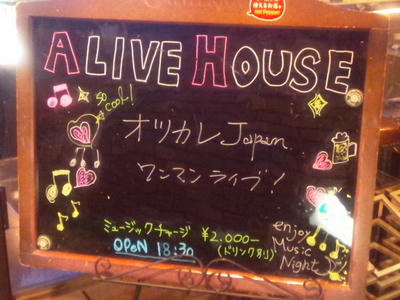 Hot Pepper
ALIVE HOUSE
so cool!
オツカレ Japan
ワンマンライブ!
ミュージックチャージ ¥2.000-
(ドリンク別)
OPEN 18:30
enjoy
Music
Night